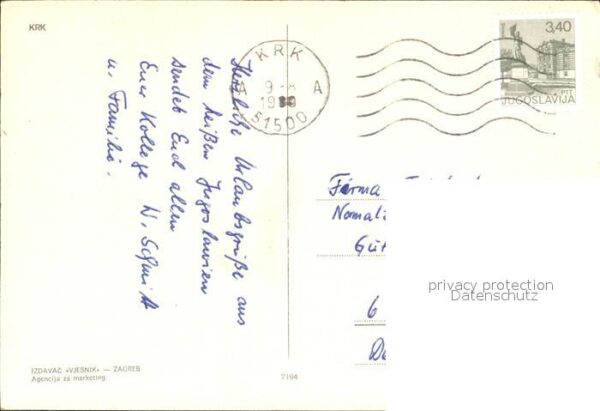 KRK
Herzliche Urlaubsgrüße aus
dem heißen Jugoslawien
sendet Euch allen
Euer Kollege W. Schmidt
u. Familie.
KRK
A 9-8 A
1980
51500
3,40
PTT
JUGOSLAVIJA
Firma
6
privacy protection
Datenschutz
IZDAVAČ «VJESNIK» — ZAGREB
Agencija za marketing
7194